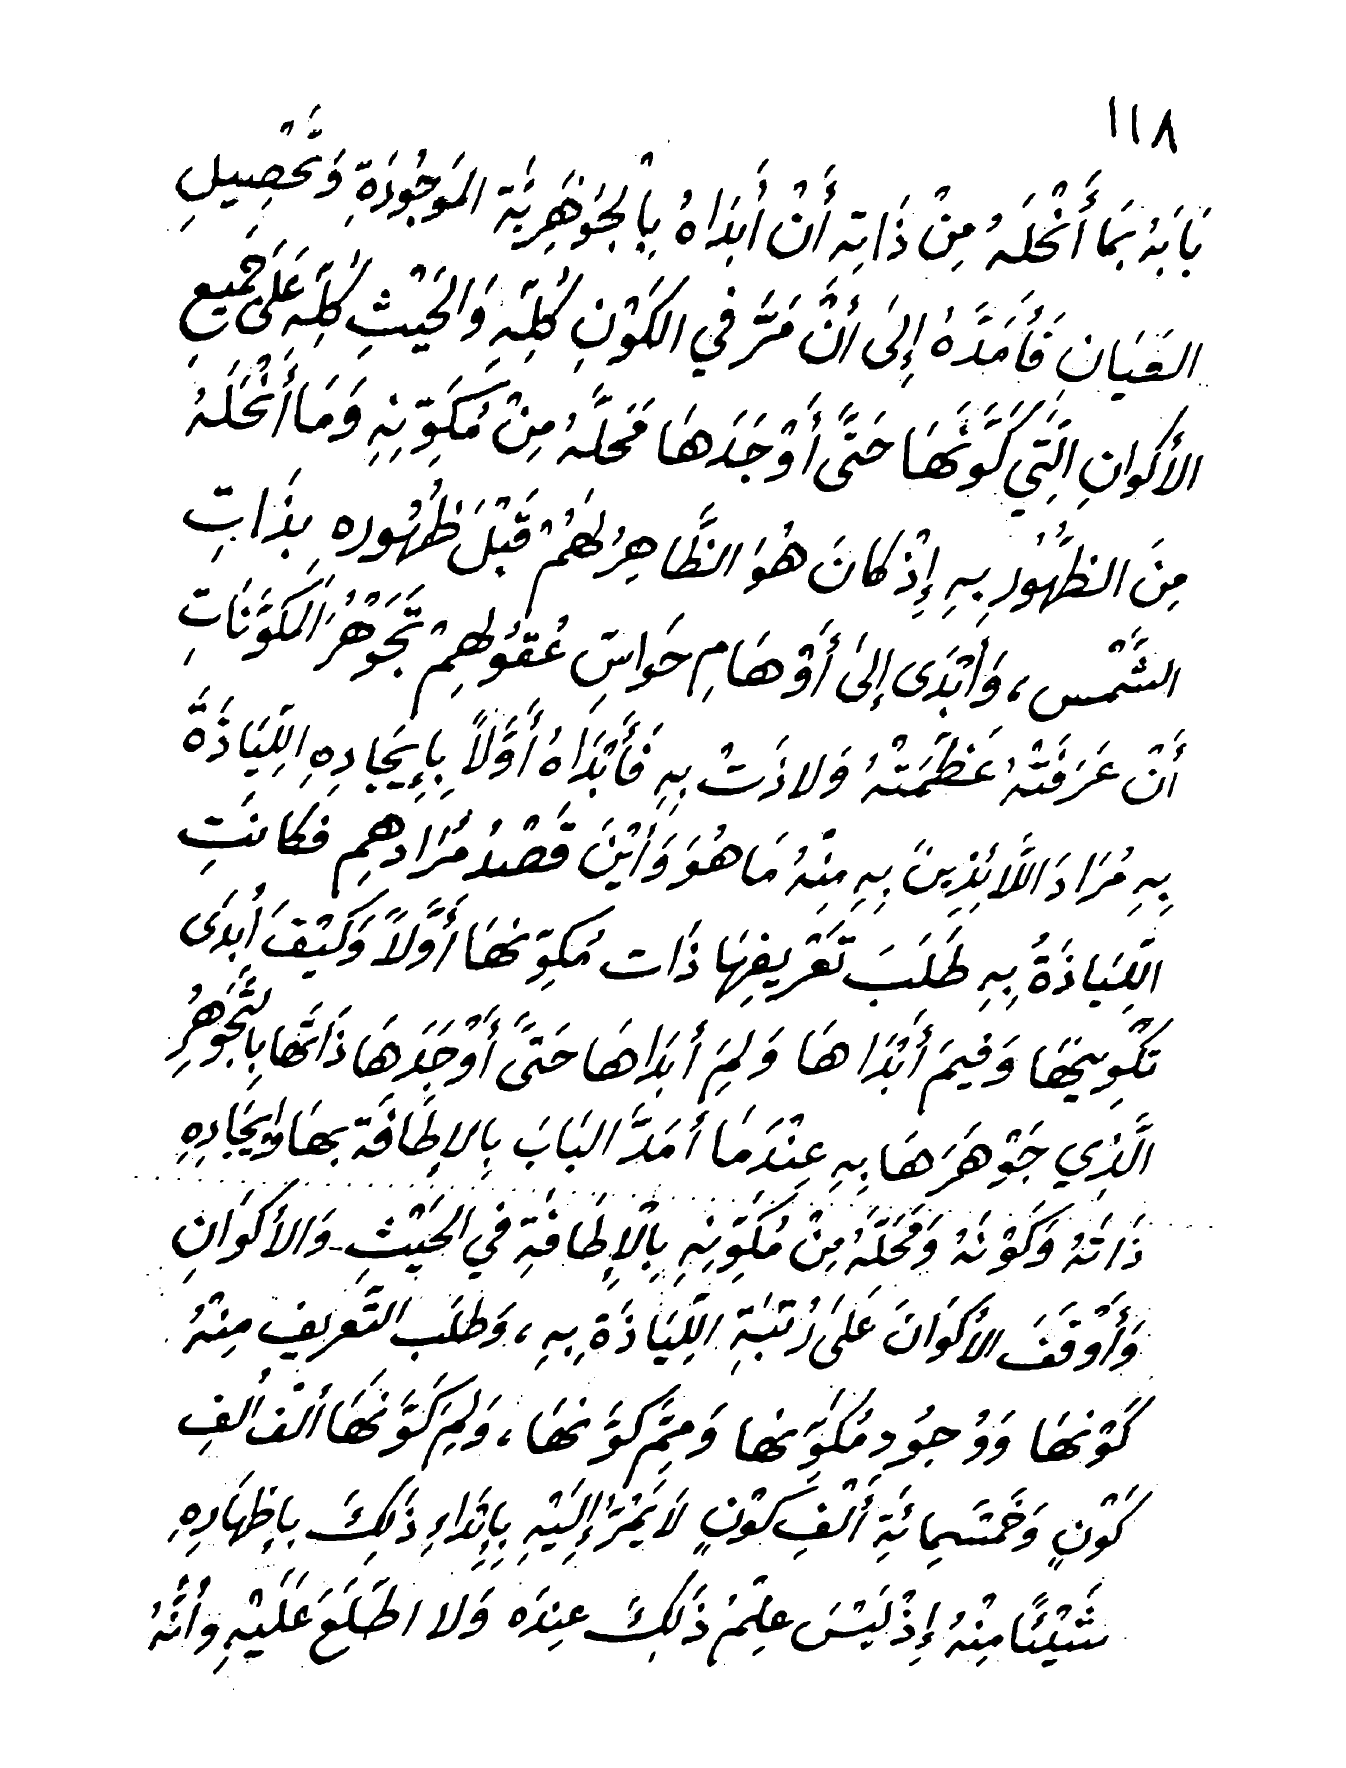 ١١٨
بَابَهُ بِمَا أَنْحَلَهُ مِنْ ذَاتِهِ أَنْ أَبْدَاهُ بِالجَوْهَرِيَّةِ المَوجُودَةِ وَتَحْصِيلِ
العَيَانِ فَأَمَدَّهُ إِلَى أنْ مَرَّ في الكَوْنِ كُلِّهِ وَالحَيْثِ كُلِّهِ عَلَى جَمِيعِ
الأكوانِ الَّتِي كَوَّنَهَا حَتَّى أَوْجَدَهَا مَحَلَّهُ مِنْ مُكَوِّنِهِ وَمَا أَنْحَلَهُ
مِنَ الظهُورِ بِهِ إِذْ كانَ هُوَ الظَّاهِرُ لهُمْ قَبْلَ ظُهُورِهِ بِذَاتِ
الشَّمْسِ، وَأبْدَى إِلَى أَوْهَامِ حَوَاسِّ عُقُولهِمْ تَجَوْهُرُ المكَوَّنَاتِ
أَنْ عَرَفَتْهُ عَظَمَتْهُ وَلاذَتْ بِهِ فَأَبْدَاهُ أَوَّلاً بِإِيجَادِهِ اللِّيَاذَةَ
بِهِ مُرَادَ اللَّائِذِينَ بِهِ مِنْهُ مَا هُوَ وَأيْنَ قَصْدُ مُرَادهِم فكانَتِ
اللِّيَاذَةُ بِهِ طَلَبَ تَعْرِيفِهَا ذَات مُكوِّنهَا أَوَّلاً وَكَيْفَ أَبدَى
تَكْوِينَهَا وَفيمَ أَبْدَاهَا وَلِمَ أَبدَاها حَتَّى أَوْجَدَهَا ذَاتَها بِالتَّجَوْهُرِ
الَّذِي جَوْهَرَهَا بِهِ عِنْدَمَا أَمَدَّ البَابَ بِالإِطَافَة بهَا وَإيجَادِهِ
ذَاتَهُ وَكَوْنَهُ وَمَحَلَّهُ مِنْ مُكَوِّنِهِ بِالْإِطَافَةِ في الحَيْثِ وَالأكوَانِ
وَأَوْقَفَ الأكوَانَ عَلَى رُتْبَةِ اللِّيَاذَةِ بِهِ، وَطلَب التَّعريفِ مِنْهُ
كَوْنهَا وَوُجُودِ مُكوِّنها وَمِمَّ كوَّنهَا، وَلِمَ كَوَّنهَا أَلْفَ أَلفِ
كَوْنٍ وَخَمْسَمِائَةِ أَلْفِ كَوْنٍ لَا يَمُرُّ إِلَيْهِ بِابتدَاءِ ذَلِكَ بِإظهَارِهِ
شَيْئًا مِنْهُ إِذْ لَيْسَ عِلْمُ ذَلِكَ عِندَه وَلا اطَّلَعَ عَلَيْهِ وأَنَّهُ